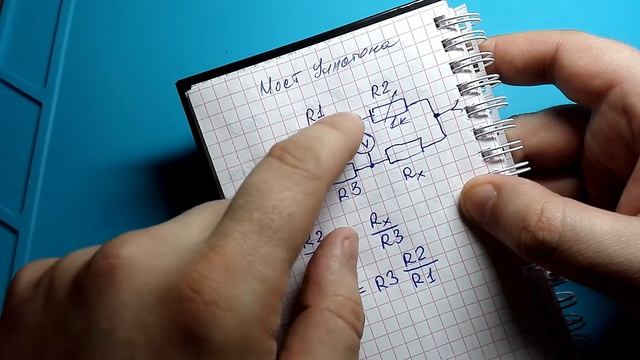 Мост Уинстона
R1 R2
V
R3 Rx
R2 Rx
R3
= R3 R2
R1